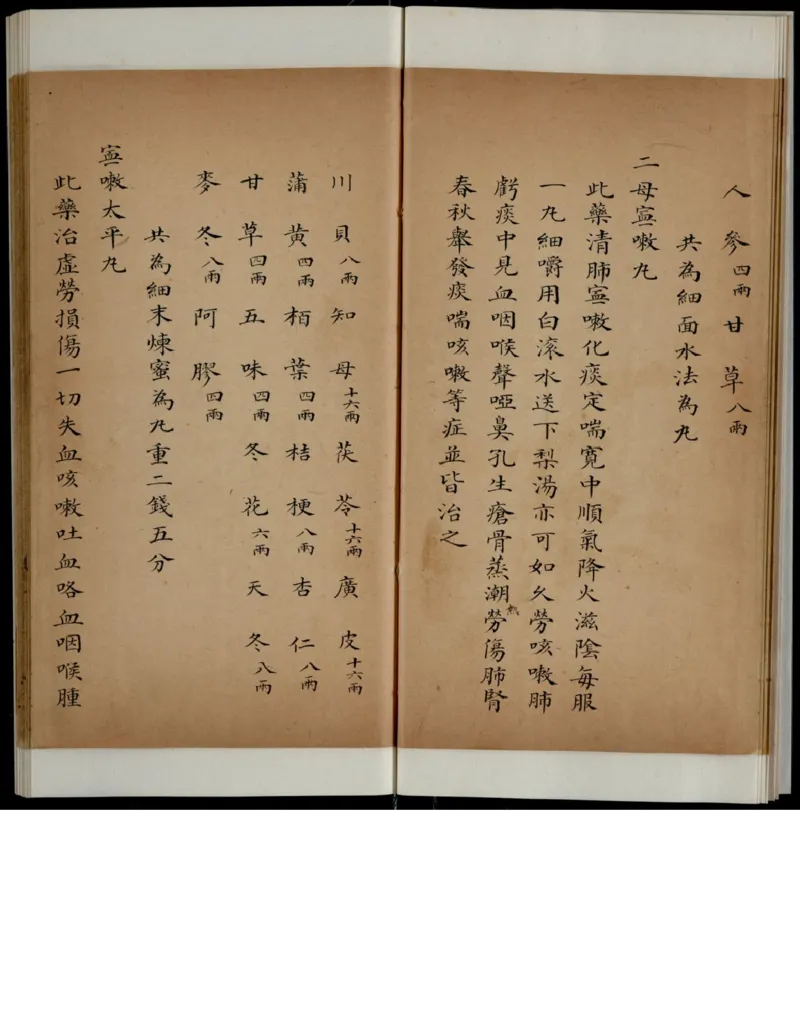 人參四兩甘草八兩
共為細面水法為丸
二母寍嗽丸
此藥清肺寍嗽化痰定喘寬中順氣降火滋陰每服
一丸細嚼用白滚水送下梨湯亦可如久勞咳嗽肺
虧痰中見血咽喉聲啞鼻孔生瘡骨蒸潮熱勞傷肺腎
春秋舉發痰喘咳嗽等症並皆治之
川貝八兩知母十六兩茯苓十六兩廣皮十六兩
蒲黃四兩栢葉四兩桔梗八兩杏仁八兩
甘草四兩五味四兩冬花六兩天冬八兩
麥冬八兩阿膠四兩
共為細末煉蜜為丸重二錢五分
寍嗽太平丸
此藥治虛勞損傷一切失血咳嗽吐血咯血咽喉腫